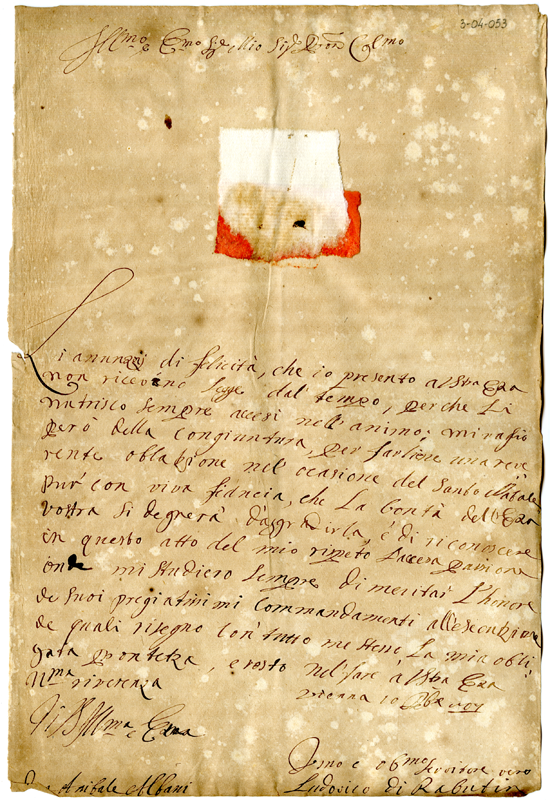 3-04-053
Ill.mo e Ecc.mo Sig.e Mio Sig.e Pron Col.mo
Li annunzij di felicità, che io presento a Vstra Ecza
non ricevono legge dal tempo, perche Li
nutrisco sempre accesi nell'animo; mi
però della congiuntura, per fargliene una reve
rente oblazione nel' ocasione del Santo Natale
pur con viva fidancia, che La bontà dell'Ecza
vostra si degnerà d'aggradirla, e di riconoscere
in questo atto del mio rispeto L'accesa passione
onde mi studiero sempre di meritar L'honore
de suoi pregiatissimi Commandamenti
de quali con tutto me stesso La mia obli
gata prontezza, e resto nel fare à Vstra Ecza
riverenza
Vienna 10
Di V Ill.ma e Ecza
e Ob.mo Servitore vero
Anibale Albani
Ludovico di Rabutin